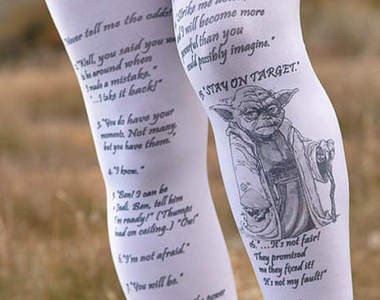 Never tell me the odds
"Well, you said you
to be around when
I made a mistake."
"...I take it back!"
3. "You do have your
moments. Not many,
but you have them."
4. "I know."
5. "Ben! I can be
a Jedi. Ben, tell him
I'm ready!" (Thumps
head on ceiling.) "Ow!"
6. "I'm not afraid."
7. "You will be."
power
Strike me down
I will become more
powerful than you
could possibly imagine."
5. "STAY ON TARGET."
6. "...It's not fair!
They promised
me they fixed it!
It's not my fault!"